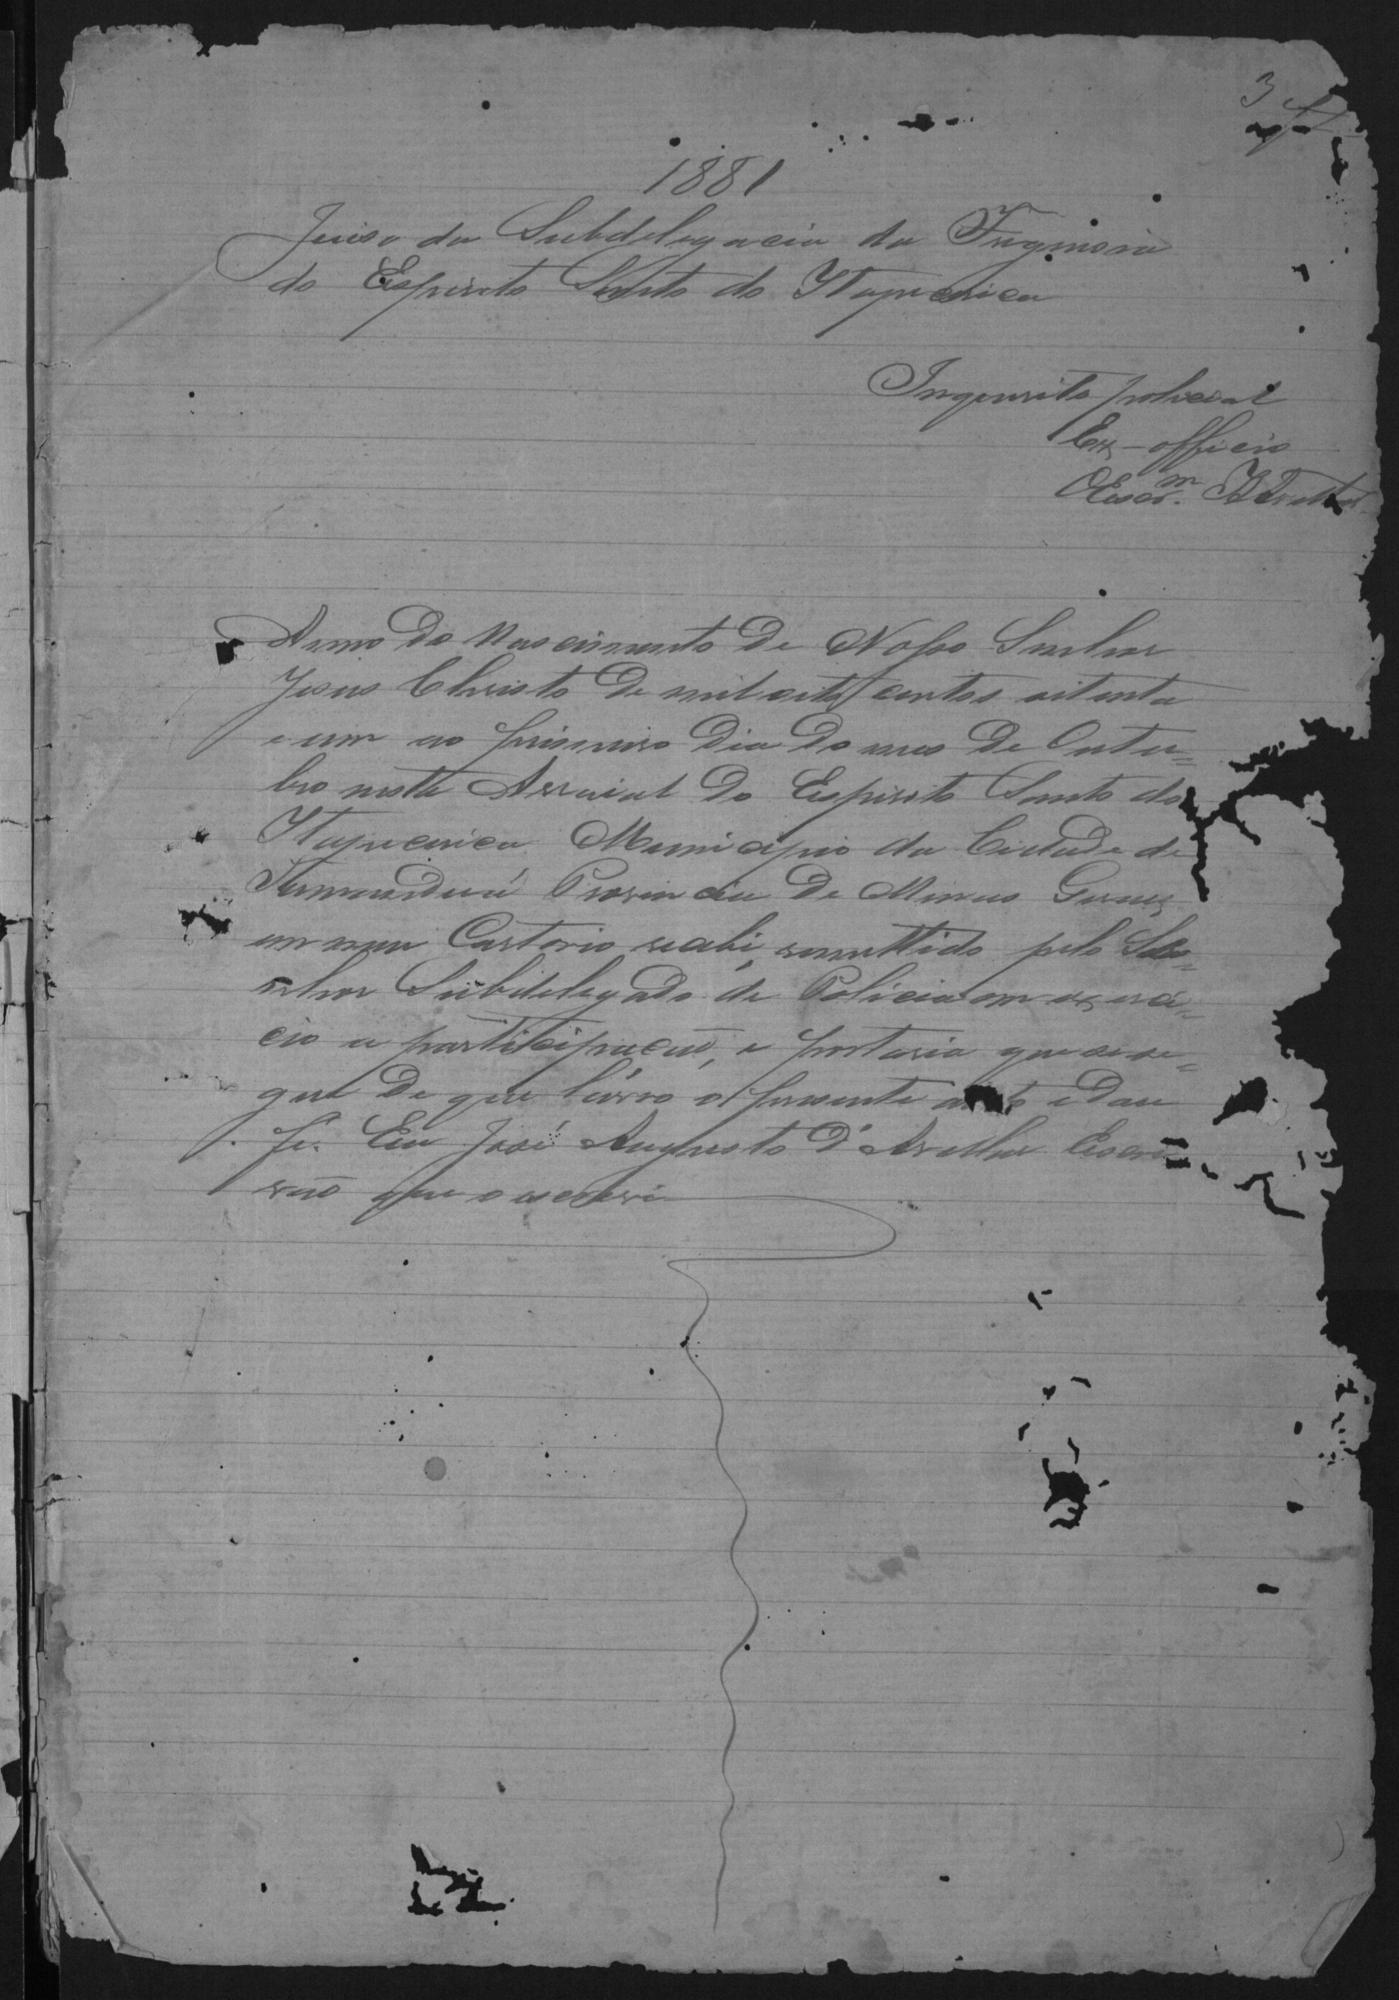 3
1881
Juiso da Subdelegacia da Freguesia
do Espirito Santo do Itapecirica
Inquerito policial
Ex-officio
O Escr.m
Anno do Nascimento de Nosso Senhor
Jesus Christo de mil oito centos oitenta
e um ao primeiro dia do mes de Outu=
bro neste Arraial do Espirito Santo do
Itapecirica Municipio da Cidade de
Tamanduá Provincia de Minas Geraes
em meu Cartorio recebi, remettido pelo Se=
nhor Subdelegado de Policia em exerci=
cio a participação, e portaria que se se=
gue de que lavro o presente auto e dou
fé. Eu José Augusto d'Avellar Escri
vão que o escrevi